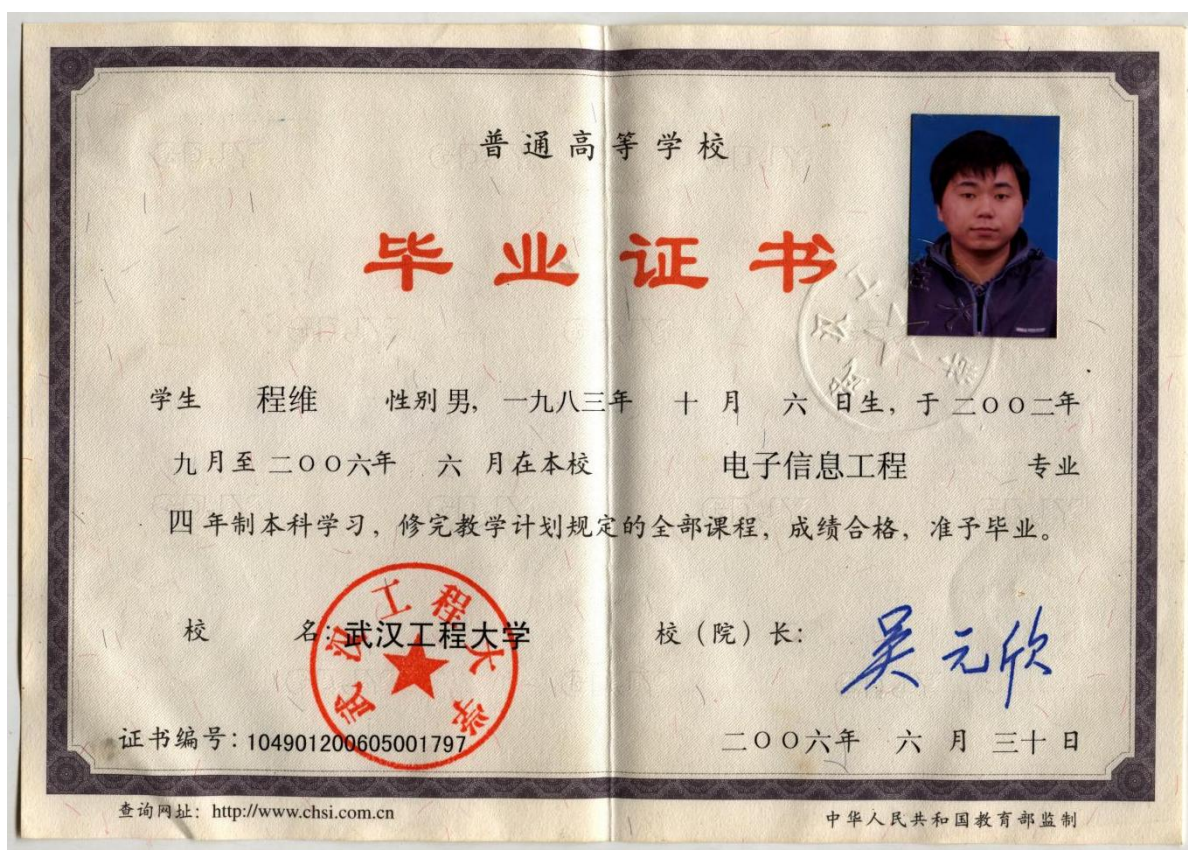 普通高等学校
毕业证书
学生 程维 性别 男, 一九八三年 十 月 六 日生, 于 二〇〇二年
九 月至 二〇〇六年 六 月在本校 电子信息工程 专业
四 年制本科学习, 修完教学计划规定的全部课程, 成绩合格, 准予毕业。
校 名: 武汉工程大学 校 (院) 长: 吴元欣
武汉工程大学
证书编号: 104901200605001797 二〇〇六年 六 月 三十 日
查询网址: http://www.chsi.com.cn 中华人民共和国教育部监制